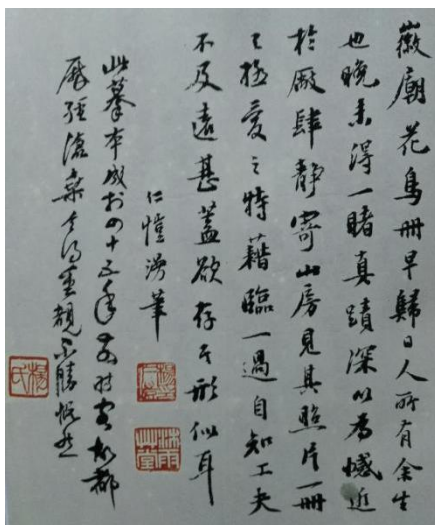 徽廟花鳥冊早歸日人所有余生
也晚未得一睹真蹟深以為憾近
於厰肆靜寄山房見其照片一冊
極愛之特藉臨一過自知工夫
不及遠甚蓋欲存其形似耳
仁愷漫筆
此摹本成於四十五年前時客成都
歷經滄桑今得重覩不勝慨然
沐雨草堂
楊氏